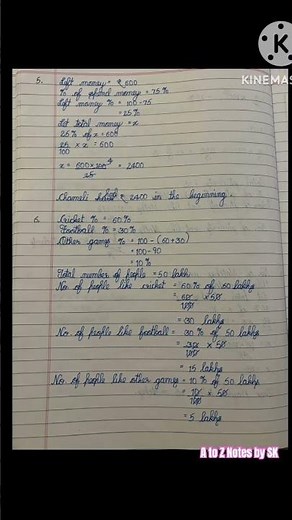 K
KINEMAS
5. Left money = ₹ 600
% of spend money = 75%
Left money % = 100-75
= 25%
Let total money = x
25% of x = 600
25/100 × x = 600
x = 600×100 4/25 = 2400
Chameli had ₹ 2400 in the beginning.
6. Cricket % = 60%
Football % = 30%
Other games % = 100-(60+30)
= 100-90
= 10%
Total number of people = 50 lakh
No. of people like cricket = 60% of 50 lakhs
= 60/100 × 50
= 30 lakhs
No. of people like football = 30% of 50 lakhs
= 30/100 × 50
= 15 lakhs
No. of people like other games = 10% of 50 lakhs
= 10/100 × 50
= 5 lakhs
A to Z Notes by SK